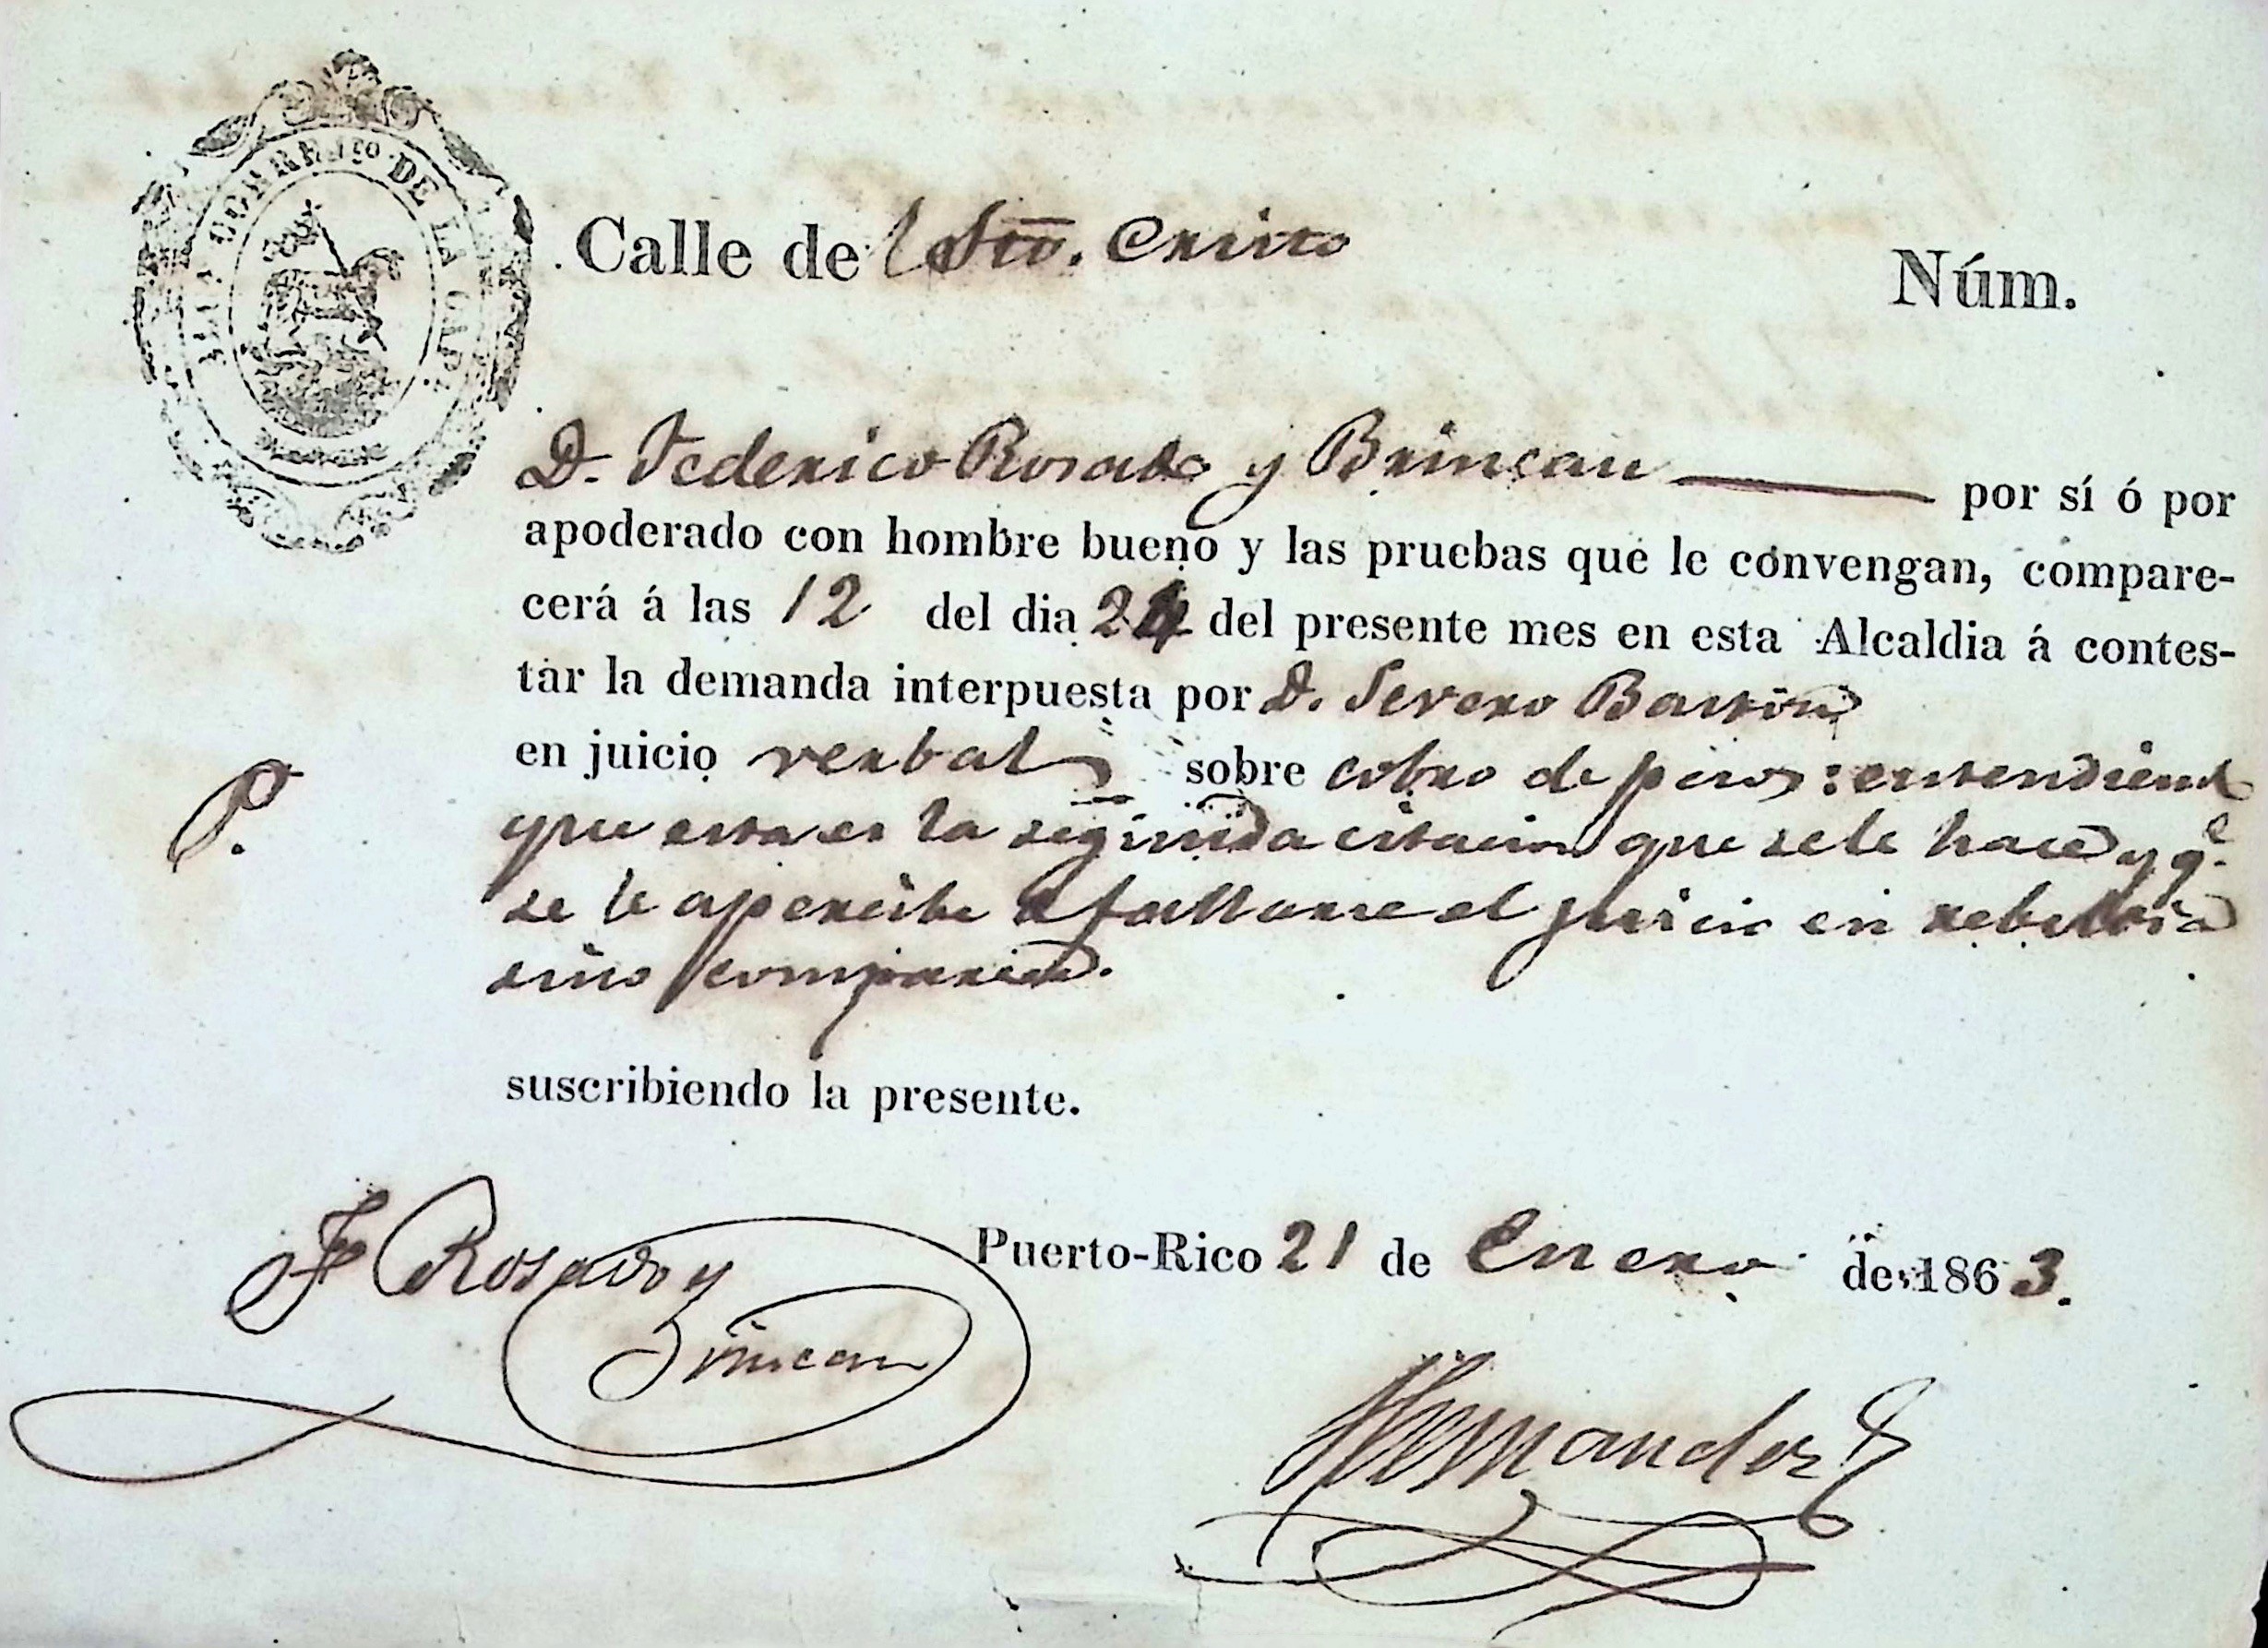 CORREJ.TO DE LA CAP.
Calle del Sto. Cristo
Núm.
D. Federico Rosado y Brincau por sí ó por
apoderado con hombre bueno y las pruebas que le convengan, compare-
cerá á las 12 del dia 24 del presente mes en esta Alcaldia á contes-
tar la demanda interpuesta por D. Severo
en juicio verbal sobre cobro de pesos: entendiend
P.
que esta es la segunda citacion que se le hace y q.e
se le apercibe fallarse el juicio en rebeldia
sino comparece.
suscribiendo la presente.
Puerto-Rico 21 de Enero de 1863.
F Rosado y
Brincau
Hernandez